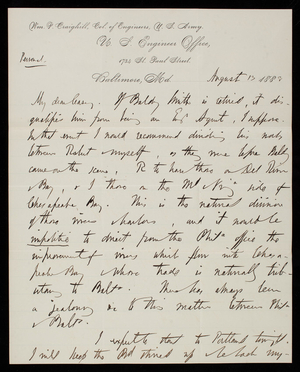 Wm. P. Craighill, Col. of Engineers, U. S. Army.
U. S. Engineer Office,
1725 St. Paul Street
Personal.
Baltimore, Md August 13 188
My dear Casey. If Baldy Smith is retired, it dis-
qualifies him from being an U.S. Agent, I suppose.
In that event I would recommend dividing his works
between Robert & myself, as they were before Baldy
came on the scene, R to have those on Del River
& Bay, & I those on the Md & side of
Chesapeake Bay. This is the natural division
of those rivers & harbors and it would be
impolitic to direct from the Phil office the
improvement of rivers which flow into Chesa-
peake Bay & whose trade is naturally tribu-
tary to Balto. There has always been
a jealousy as to this matter between Phil
& Balto.
I expect to start to Portland tonight.
I will keep the Bd stirred up to look my-